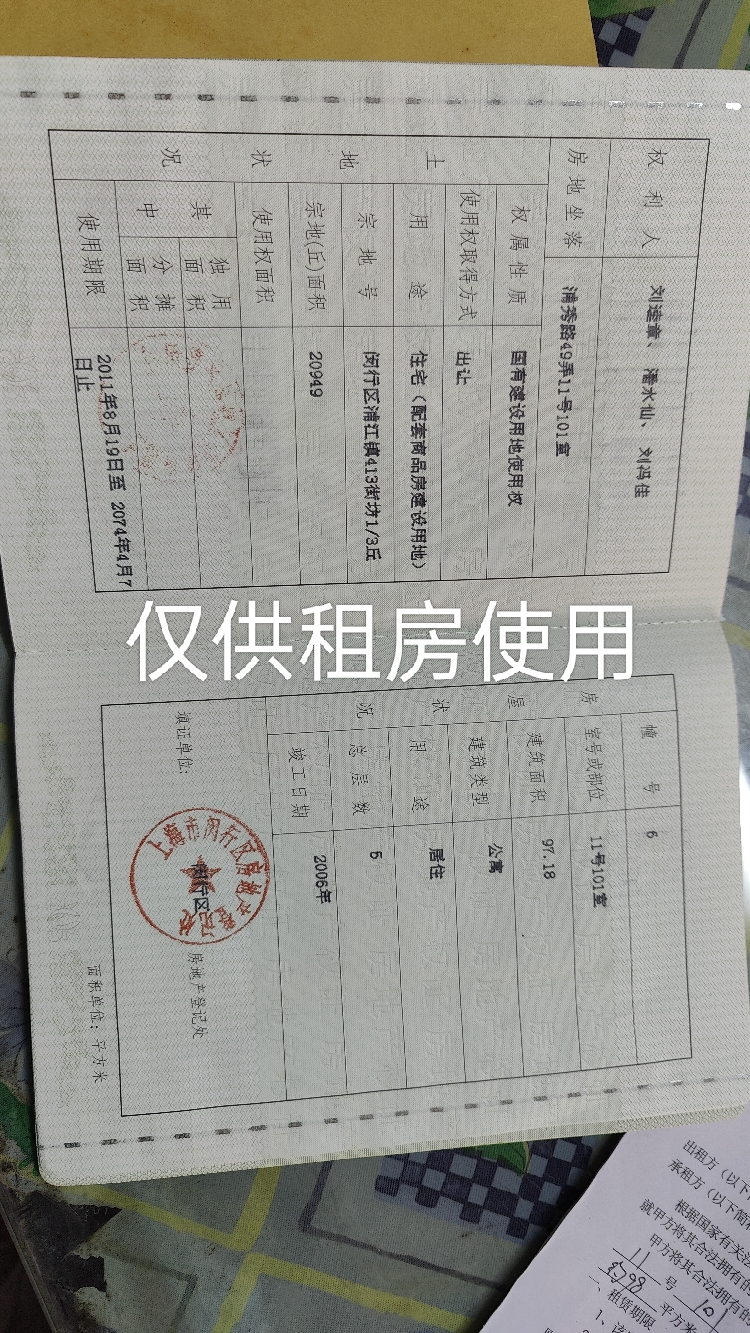 权利人 刘逵章、 潘水仙、 刘冯佳
房地坐落 浦秀路49弄11号101室
土地状况
权属性质 国有建设用地使用权
使用权取得方式 出让
用途 住宅（配套商品房建设用地）
宗地号 闵行区浦江镇413街坊1/3丘
宗地(丘)面积 20949
使用权面积
其中
独用面积
分摊面积
使用期限 2011年8月19日至 2074年4月7日止
仅供租房使用
幢号 6
房屋状况
室号或部位 11号101室
建筑面积 97.18
建筑类型 公寓
用途 居住
总层数 5
竣工日期 2006年
填证单位: 闵行区 房地产登记处
面积单位: 平方米
出租方（以下
承租方（以下简
根据国家有关法
就甲方将其合法拥有
甲方将其合法拥有的
11 号 101
平方米
一、租赁期限
1、该